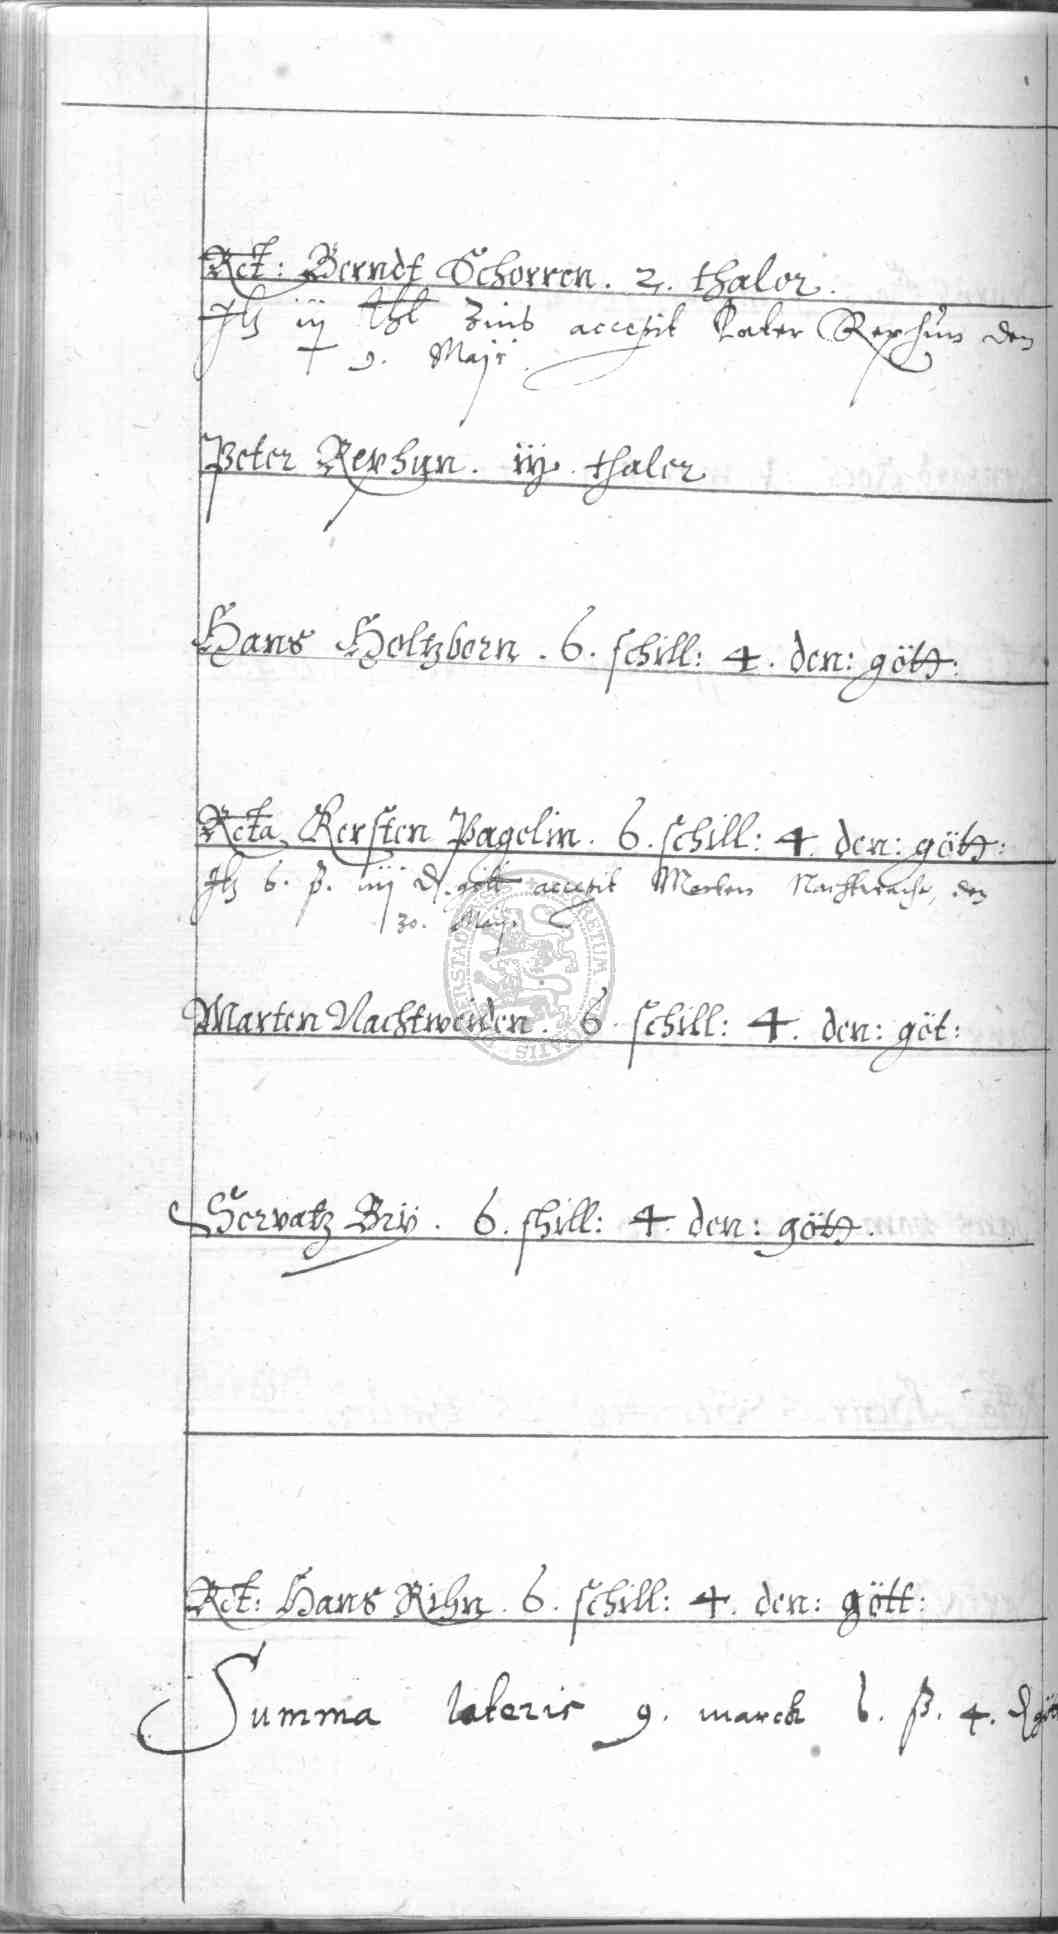 Rct: Berndt Schorren. 2. thaler.
Itz iij thl Zins accepit Pater Rephun den
9. Maji
Peter Rephun. iij. thaler
Hans Holtzborn. 6. schill: 4. den: gött:
Rcta Kersten Pagelin. 6. schill: 4. den: gött:
Itz 6. ß. iiij d. gött accepit Merten den
30. Maij.
Marten Nachtweiden. 6. schill: 4. den: göt:
Servatz Brij. 6. shill: 4. den: gött.
Rct: Hans Rihn. 6. schill: 4. den: gött:
Summa lateris 9. marck 6. ß. 4. d gö